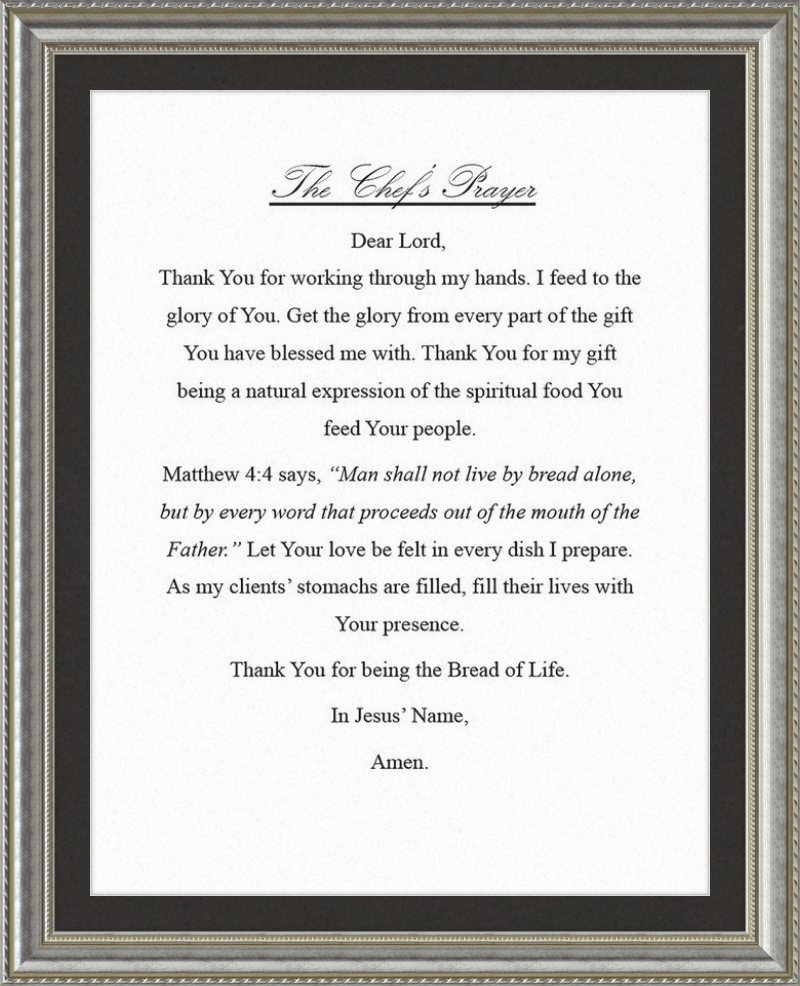 The Chef's Prayer
Dear Lord,
Thank You for working through my hands. I feed to the
glory of You. Get the glory from every part of the gift
You have blessed me with. Thank You for my gift
being a natural expression of the spiritual food You
feed Your people.
Matthew 4:4 says, “Man shall not live by bread alone,
but by every word that proceeds out of the mouth of the
Father.” Let Your love be felt in every dish I prepare.
As my clients’ stomachs are filled, fill their lives with
Your presence.
Thank You for being the Bread of Life.
In Jesus’ Name,
Amen.